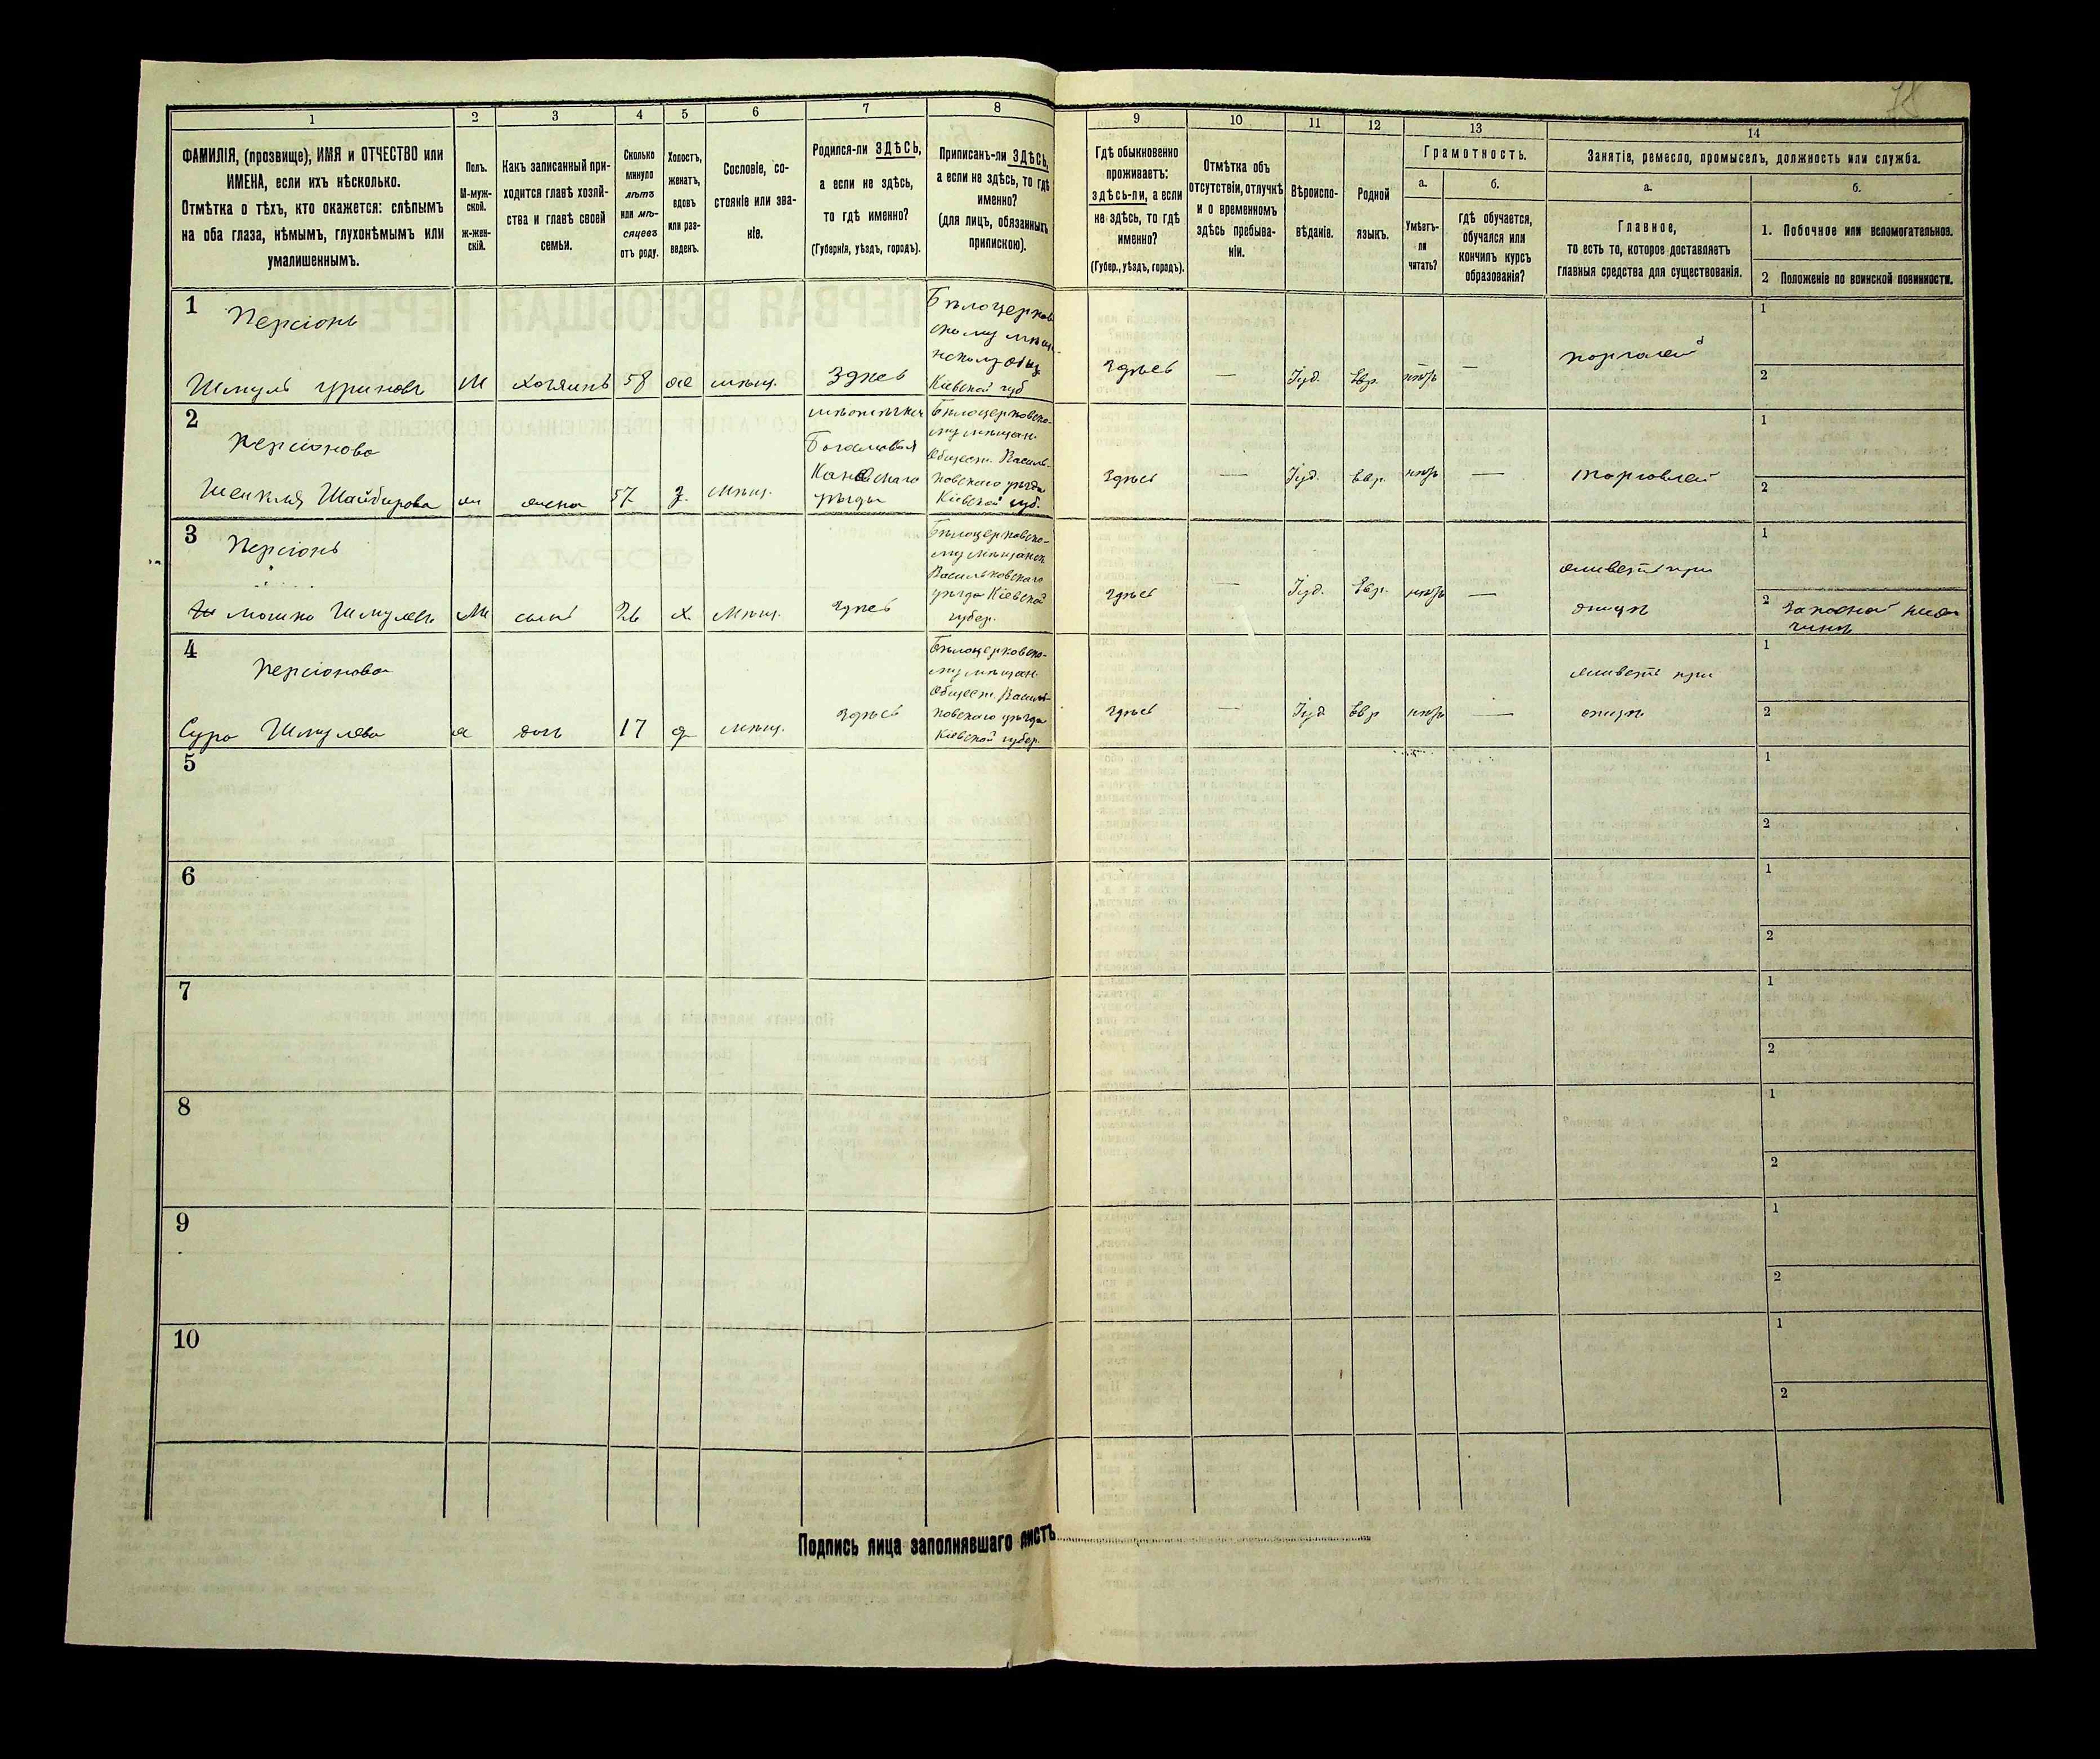 78
1
2
3
4
5
6
7
8
9
10
11
12
13
14
ФАМИЛІЯ, (прозвище), ИМЯ и ОТЧЕСТВО или
ИМЕНА, если ихъ нѣсколько.
Отмѣтка о тѣхъ, кто окажется: слѣпымъ
на оба глаза, нѣмымъ, глухонѣмымъ или
умалишеннымъ.
Полъ.
М-муж-
ской.
ж-жен-
скій.
Какъ записанный при-
ходится главѣ хозяй-
ства и главѣ своей
семьи.
Сколько
минуло
лѣтъ
или мѣ-
сяцевъ
отъ роду.
Холостъ,
женатъ,
вдовъ
или раз-
веденъ.
Сословіе, со-
стояніе или зва-
ніе.
Родился-ли ЗДѢСЬ,
а если не здѣсь,
то гдѣ именно?
(Губернія, уѣздъ, городъ).
Приписанъ-ли ЗДѢСЬ,
а если не здѣсь, то гдѣ
именно?
(для лицъ, обязанныхъ
припискою).
Гдѣ обыкновенно
проживаетъ:
здѣсь-ли, а если
не здѣсь, то гдѣ
именно?
(Губер., уѣздъ, городъ).
Отмѣтка объ
отсутствіи, отлучкѣ
и о временномъ
здѣсь пребыва-
ніи.
Вѣроиспо-
вѣданіе.
Родной
языкъ.
Грамотность.
а.
Умѣетъ-
ли
читать?
б.
гдѣ обучается,
обучался или
кончилъ курсъ
образованія?
Занятіе, ремесло, промыселъ, должность или служба.
а.
Главное,
то есть то, которое доставляетъ
главныя средства для существованія.
б.
1. Побочное или вспомогательное.
2 Положеніе по воинской повинности.
1
Персіонъ
Шмуль Уриновъ
М
хозяинъ
58
же
мѣщ.
Здѣсь
Бѣлоцерков
скому мѣщ
Кіевской губ
здѣсь
—
Іуд.
Евр.
—
1
2
2
Персіонова
жена
57
з.
мѣщ.
мѣстечка
Каневского
уѣзда
Бѣлоцерковско-
му мѣщан.
Общест. Василь-
ковского уѣзда
Кіевской губ.
здѣсь
—
Іуд.
Евр.
—
торговлей
1
2
3
Персіонъ
Мошко Шмулевъ
М
сынъ
26
х.
мѣщ.
здѣсь
Бѣлоцерковско-
му мѣщанск
Васильковского
уѣзда Кіевской
губер.
здѣсь
—
Іуд.
Евр.
—
живетъ при
отцѣ
1
2
4
Персіонова
Сура Шмулева
ж
дочь
17
д
мѣщ.
здѣсь
Бѣлоцерковско-
му мѣщан.
Общест. Василь-
ковского уѣзда
Кіевской губер.
здѣсь
—
Іуд
Евр
—
живетъ при
отцѣ
1
2
5
1
2
6
1
2
7
1
2
8
1
2
9
1
2
10
1
2
Подпись лица заполнявшаго листъ